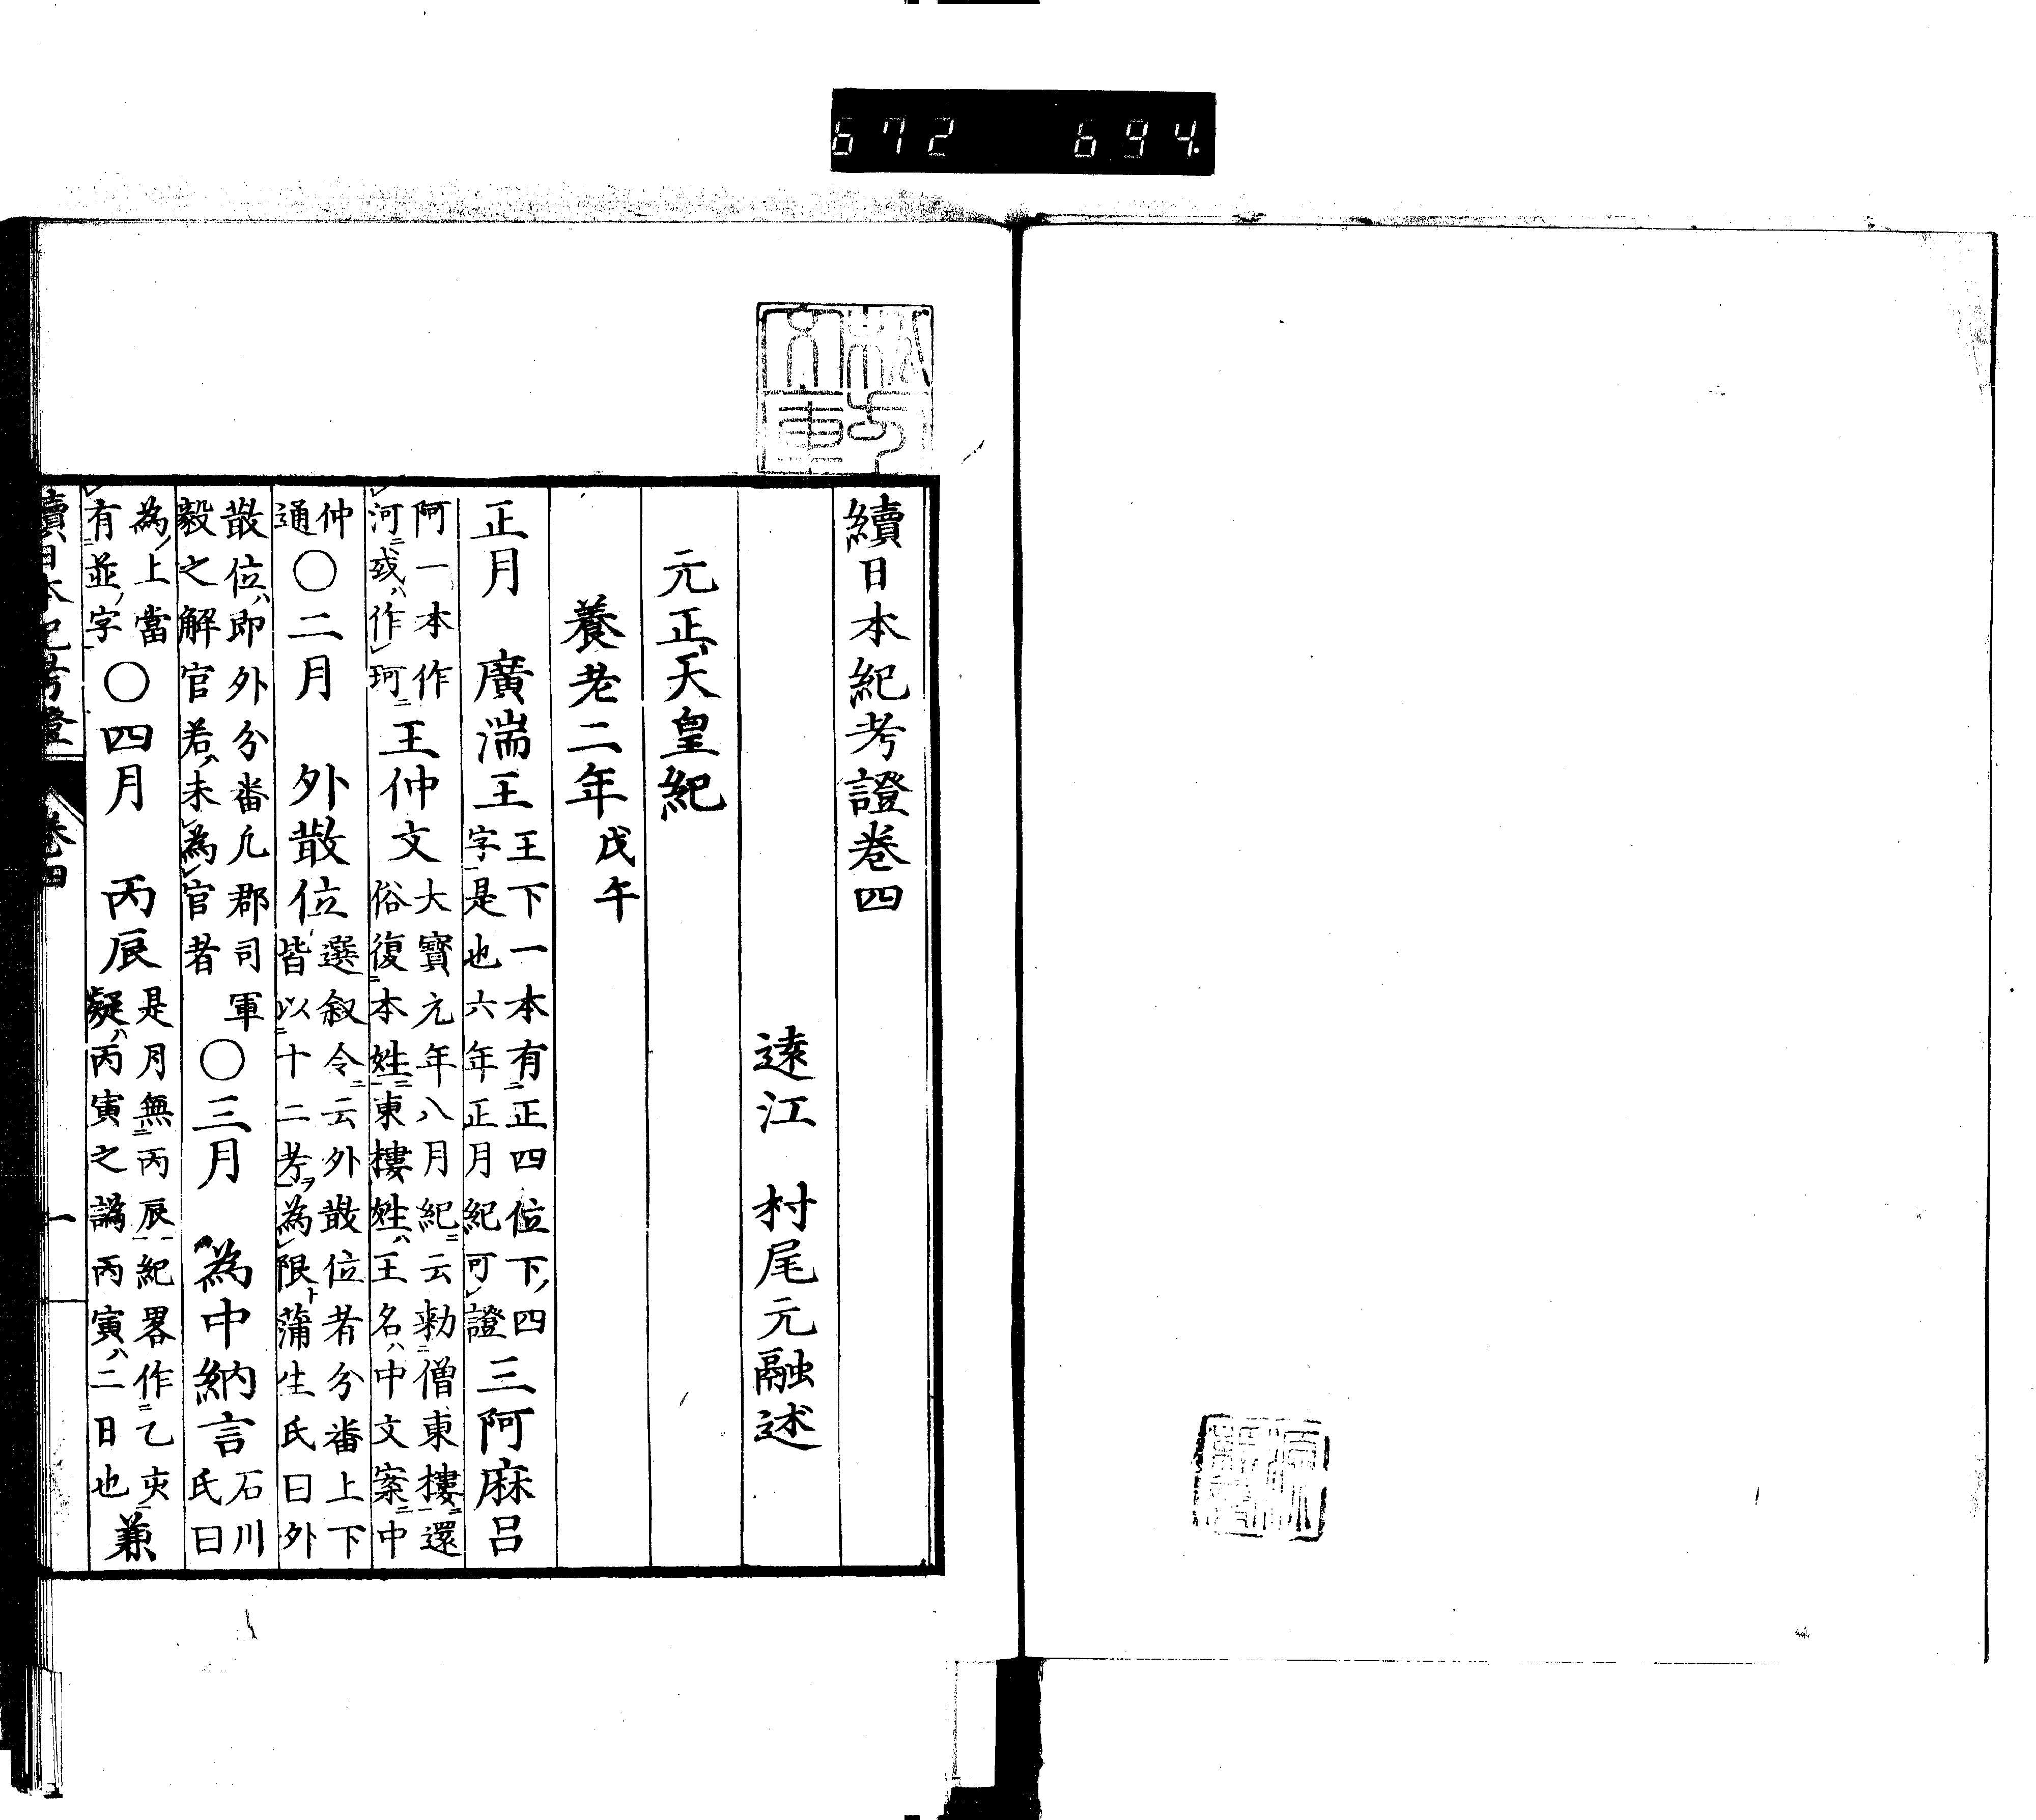 672 694.
續日本紀考證卷四
遠江 村尾元融述
元正天皇紀
養老二年戊午
正月 廣湍王王下一本有正四位下四字是也六年正月紀可證三阿麻呂
阿一本作河或作珂王仲文大寶元年八月紀云勅僧東樓還俗復本姓東樓姓王名中文案中
仲通〇二月 外散位選叙令云外散位者分番上下皆以十二考為限蒲生氏曰外
散位即外分番凢郡司軍毅之解官若未為官者〇三月 為中納言石川氏曰
為上當有並字〇四月 丙辰是月無丙辰紀畧作乙亥疑丙寅之譌丙寅二日也兼
續日本紀考證 卷四 一